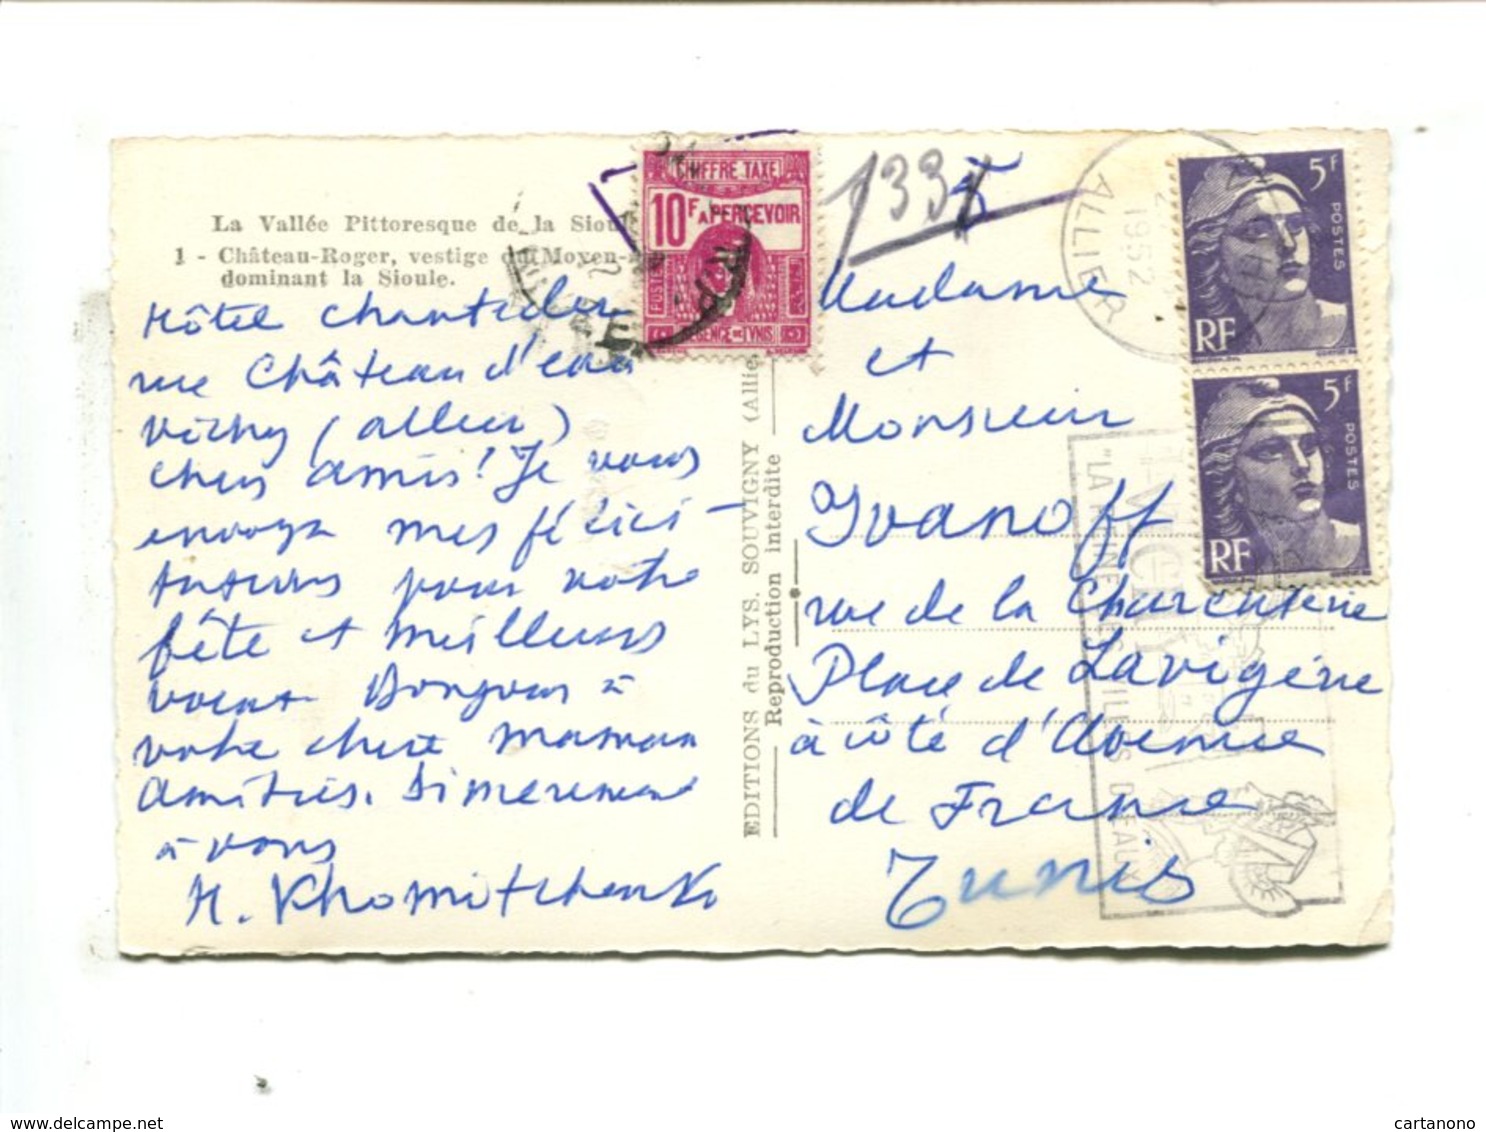 La Vallée Pittoresque de la Siou
1 - Château-Roger, vestige du Moyen-
dominant la Sioule.
Hôtel Chantecler
rue Château d'eau
Vichy (Allier)
Chers amis! Je vous
envoye mes félici-
tations pour votre
fête et meilleurs
voeux Bonjour à
votre chère maman
Amitiés. Sincerement
à vous
H. Khomitchenko
CHIFFRE TAXE
10F A PERCEVOIR
POSTES
REGENCE DE TUNIS
EDITIONS du LYS. SOUVIGNY (Allie
Reproduction interdite
133
T
1952
ALLIER
5F
POSTES
RF
5F
POSTES
RF
VICHY
"LA REINE DES VILLES D'EAUX
Madame
et
Monsieur
Yvanoff
rue de la Charcuterie
Place de Lavigérie
à côté d'Avenue
de France
Tunis
cartanono